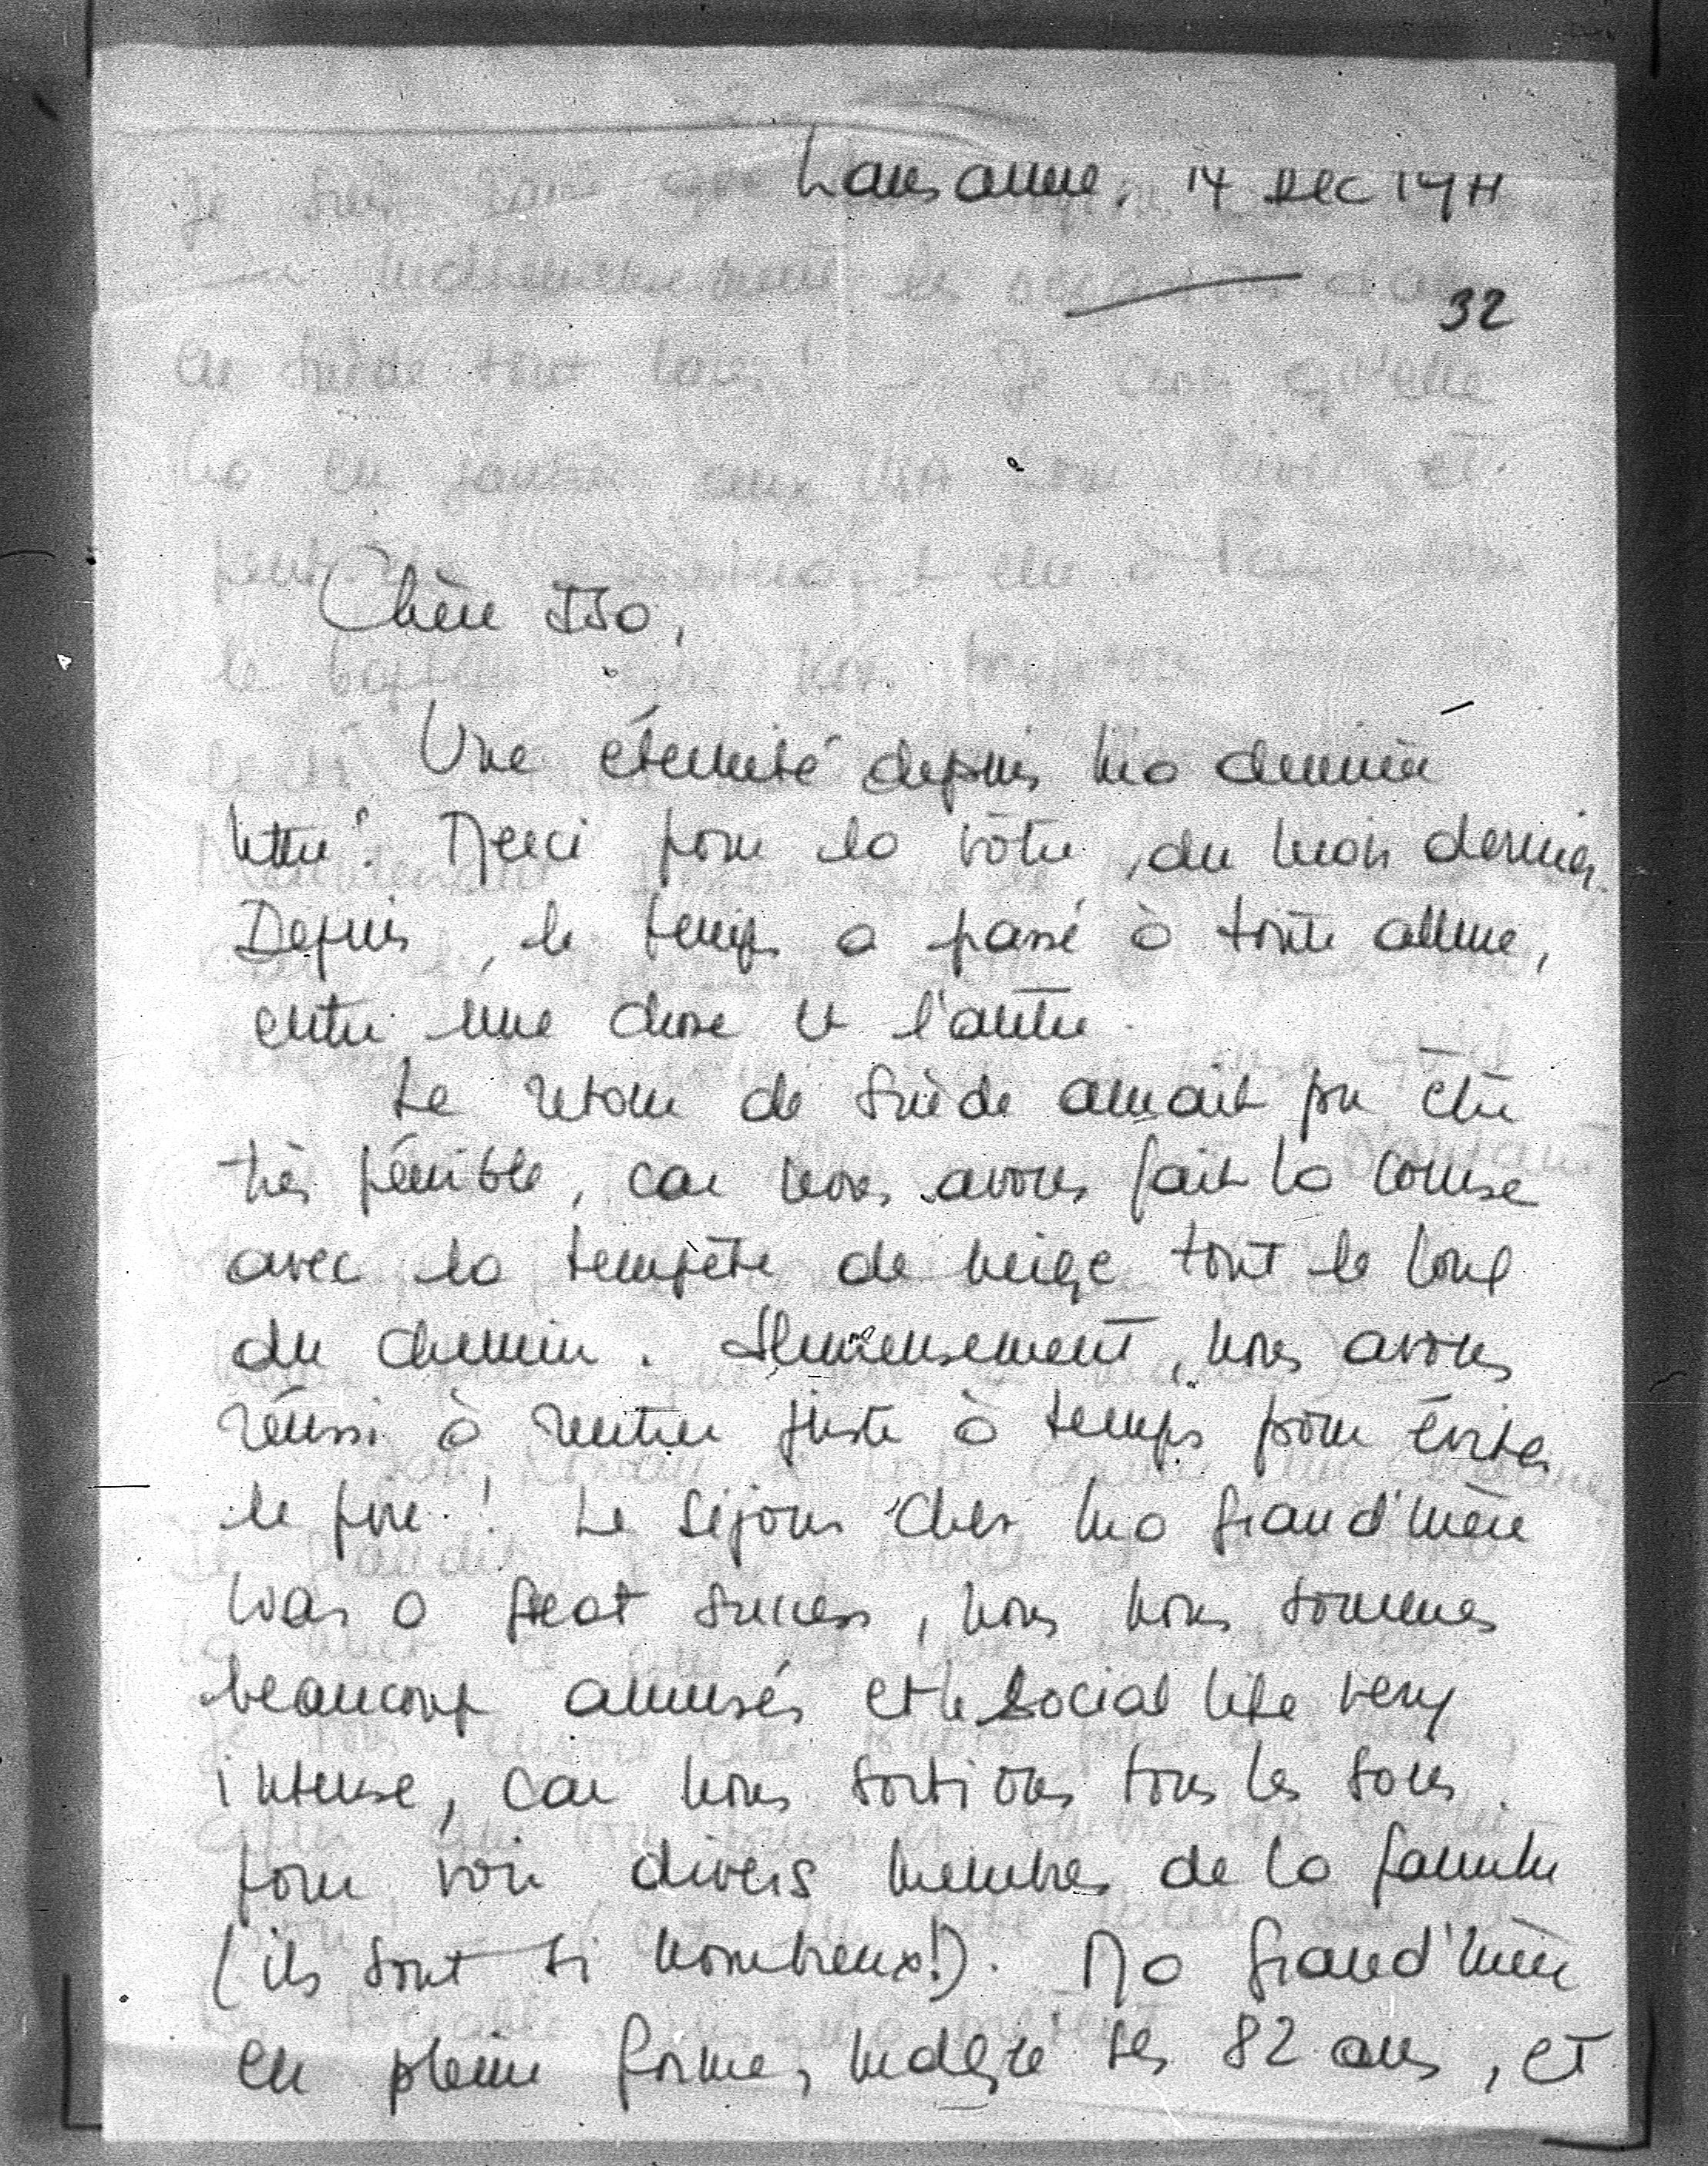 Lausanne, 14 DEC
32
Chère
Une éternité depuis ma dernière
lettre! Merci pour la vôtre, du mois dernier.
Depuis, le temps a passé à toute allure,
entre une chose et l'autre.
Le retour de Suède aurait pu être
très pénible, car nous avons fait la course
avec la tempête de neige tout le long
du chemin. Heureusement, nous avons
réussi à rentrer juste à temps pour éviter
le pire! Le séjour chez ma grand'mère
was a great success, nous nous sommes
beaucoup amusés et le social life very
intense, car nous sortions tous les soirs
pour voir divers membres de la famille
(ils sont si nombreux!). Ma grand'mère
en pleine forme, malgré ses 82 ans, et